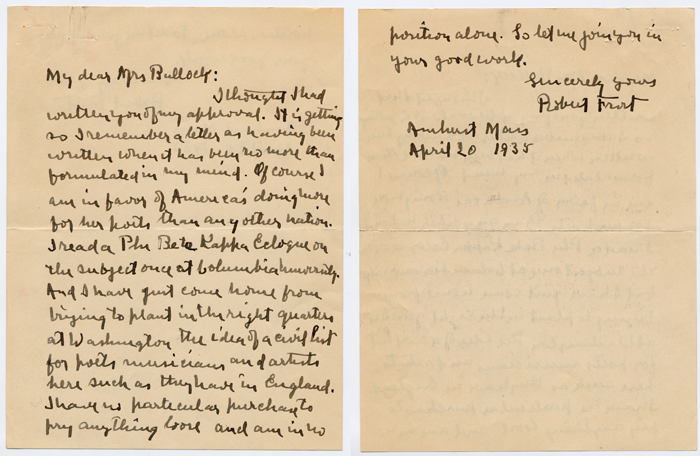 My dear Mrs Bullock:
I thought I had
written you of my approval. It is getting
so I remember a letter as having been
written when it has been no more than
formulated in my mind. Of course I
am in favor of America's doing more
for her poets than any other nation.
I read a Phi Beta Kappa Eclogue on
the subject once at Columbia University.
And I have just come home from
trying to plant in the right quarters
at Washington the idea of a civil list
for poets musicians and artists
here such as they have in England.
I have no particular purchase to
pry anything loose and am in no
position alone. So let me join you in
your good work.
Sincerely yours
Robert Frost
Amherst Mass
April 20 1935